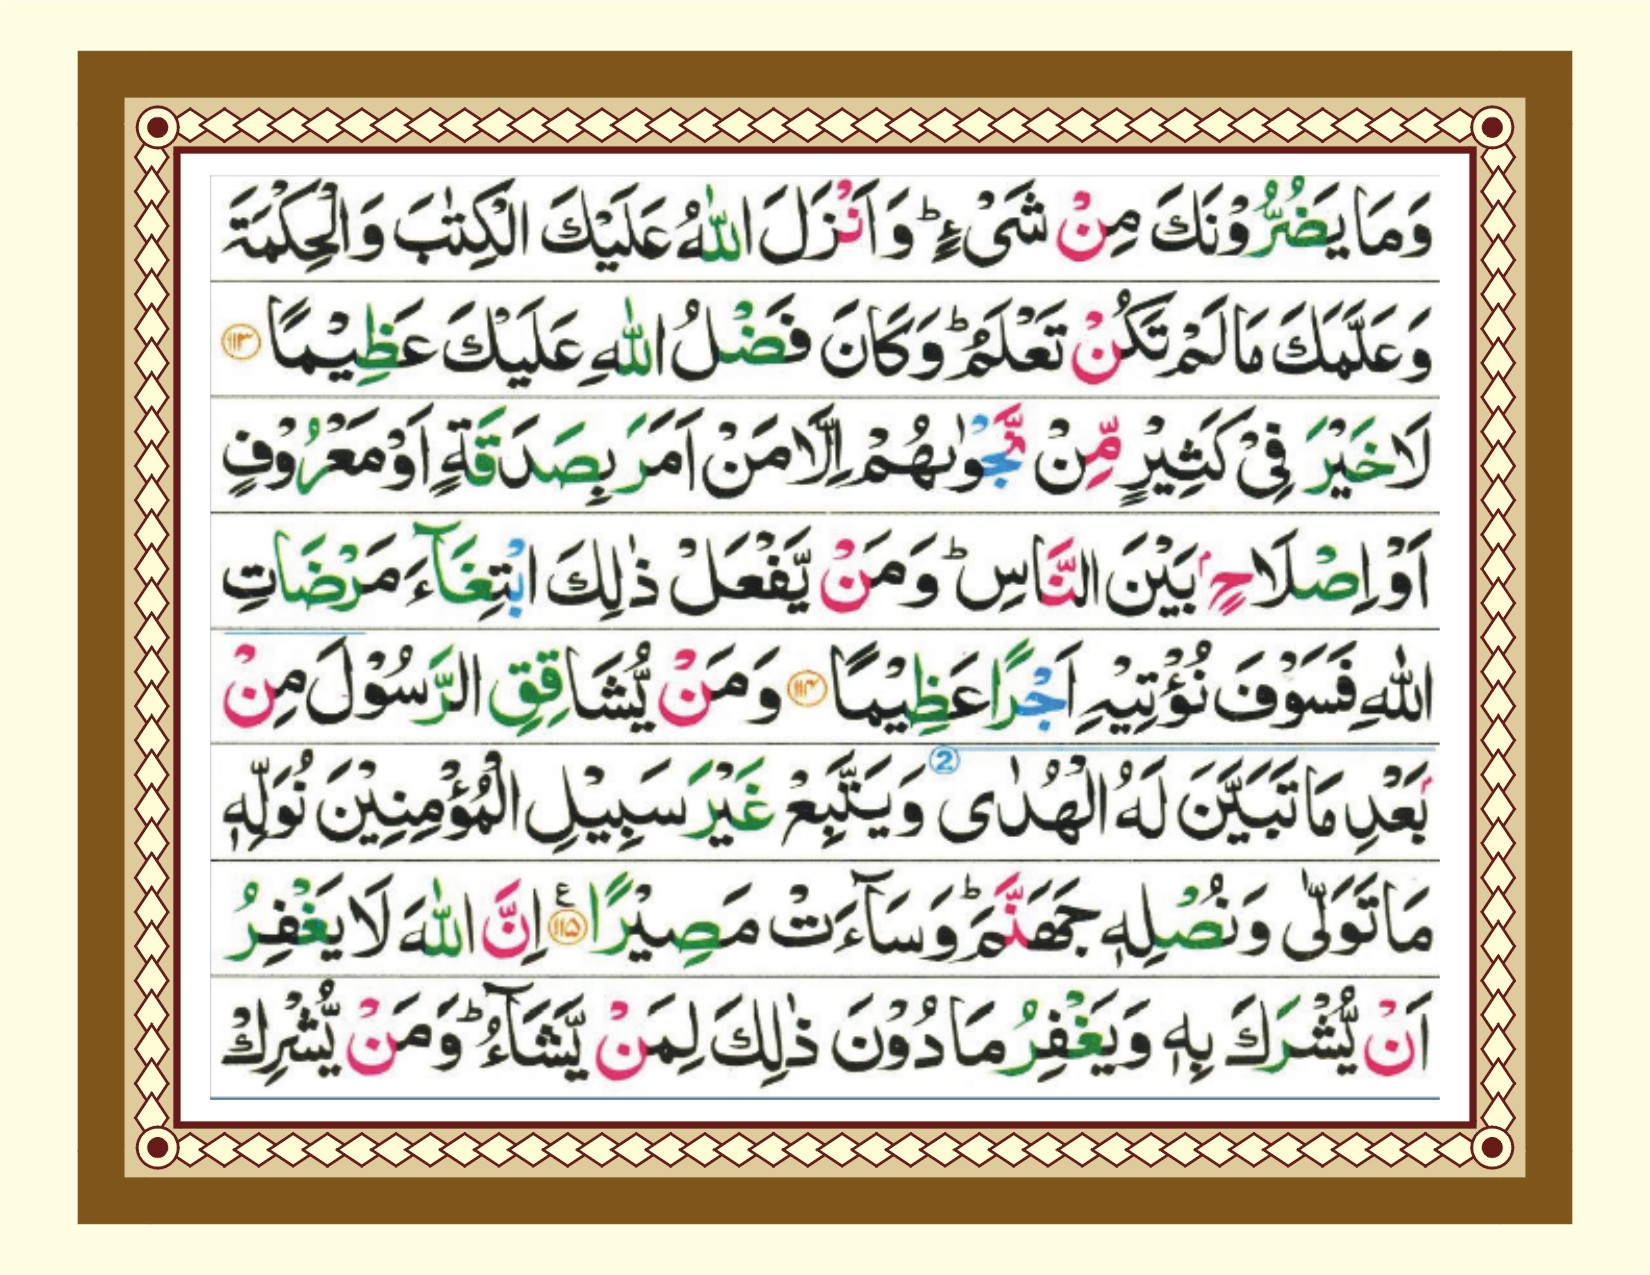 وَمَا يَضُرُّوْنَكَ مِنْ شَىْءٍ ؕ وَاَنْزَلَ اللّٰهُ عَلَيْكَ الْكِتٰبَ وَالْحِكْمَةَ
وَعَلَّمَكَ مَا لَمْ تَكُنْ تَعْلَمُ ؕ وَكَانَ فَضْلُ اللّٰهِ عَلَيْكَ عَظِيْمًا ۝۱۱۳
لَا خَيْرَ فِىْ كَثِيْرٍ مِّنْ نَّجْوٰىهُمْ اِلَّا مَنْ اَمَرَ بِصَدَقَةٍ اَوْ مَعْرُوْفٍ
اَوْ اِصْلَاحٍۭ بَيْنَ النَّاسِ ؕ وَمَنْ يَّفْعَلْ ذٰلِكَ ابْتِغَآءَ مَرْضَاتِ
اللّٰهِ فَسَوْفَ نُؤْتِيْهِ اَجْرًا عَظِيْمًا ۝۱۱۴ وَمَنْ يُّشَاقِقِ الرَّسُوْلَ مِنْۢ
بَعْدِ مَا تَبَيَّنَ لَهُ الْهُدٰى 2 وَيَتَّبِعْ غَيْرَ سَبِيْلِ الْمُؤْمِنِيْنَ نُوَلِّهٖ
مَا تَوَلّٰى وَنُصْلِهٖ جَهَنَّمَ ؕ وَسَآءَتْ مَصِيْرًا ۝۱۱۵ ع اِنَّ اللّٰهَ لَا يَغْفِرُ
اَنْ يُّشْرَكَ بِهٖ وَيَغْفِرُ مَا دُوْنَ ذٰلِكَ لِمَنْ يَّشَآءُ ؕ وَمَنْ يُّشْرِكْ